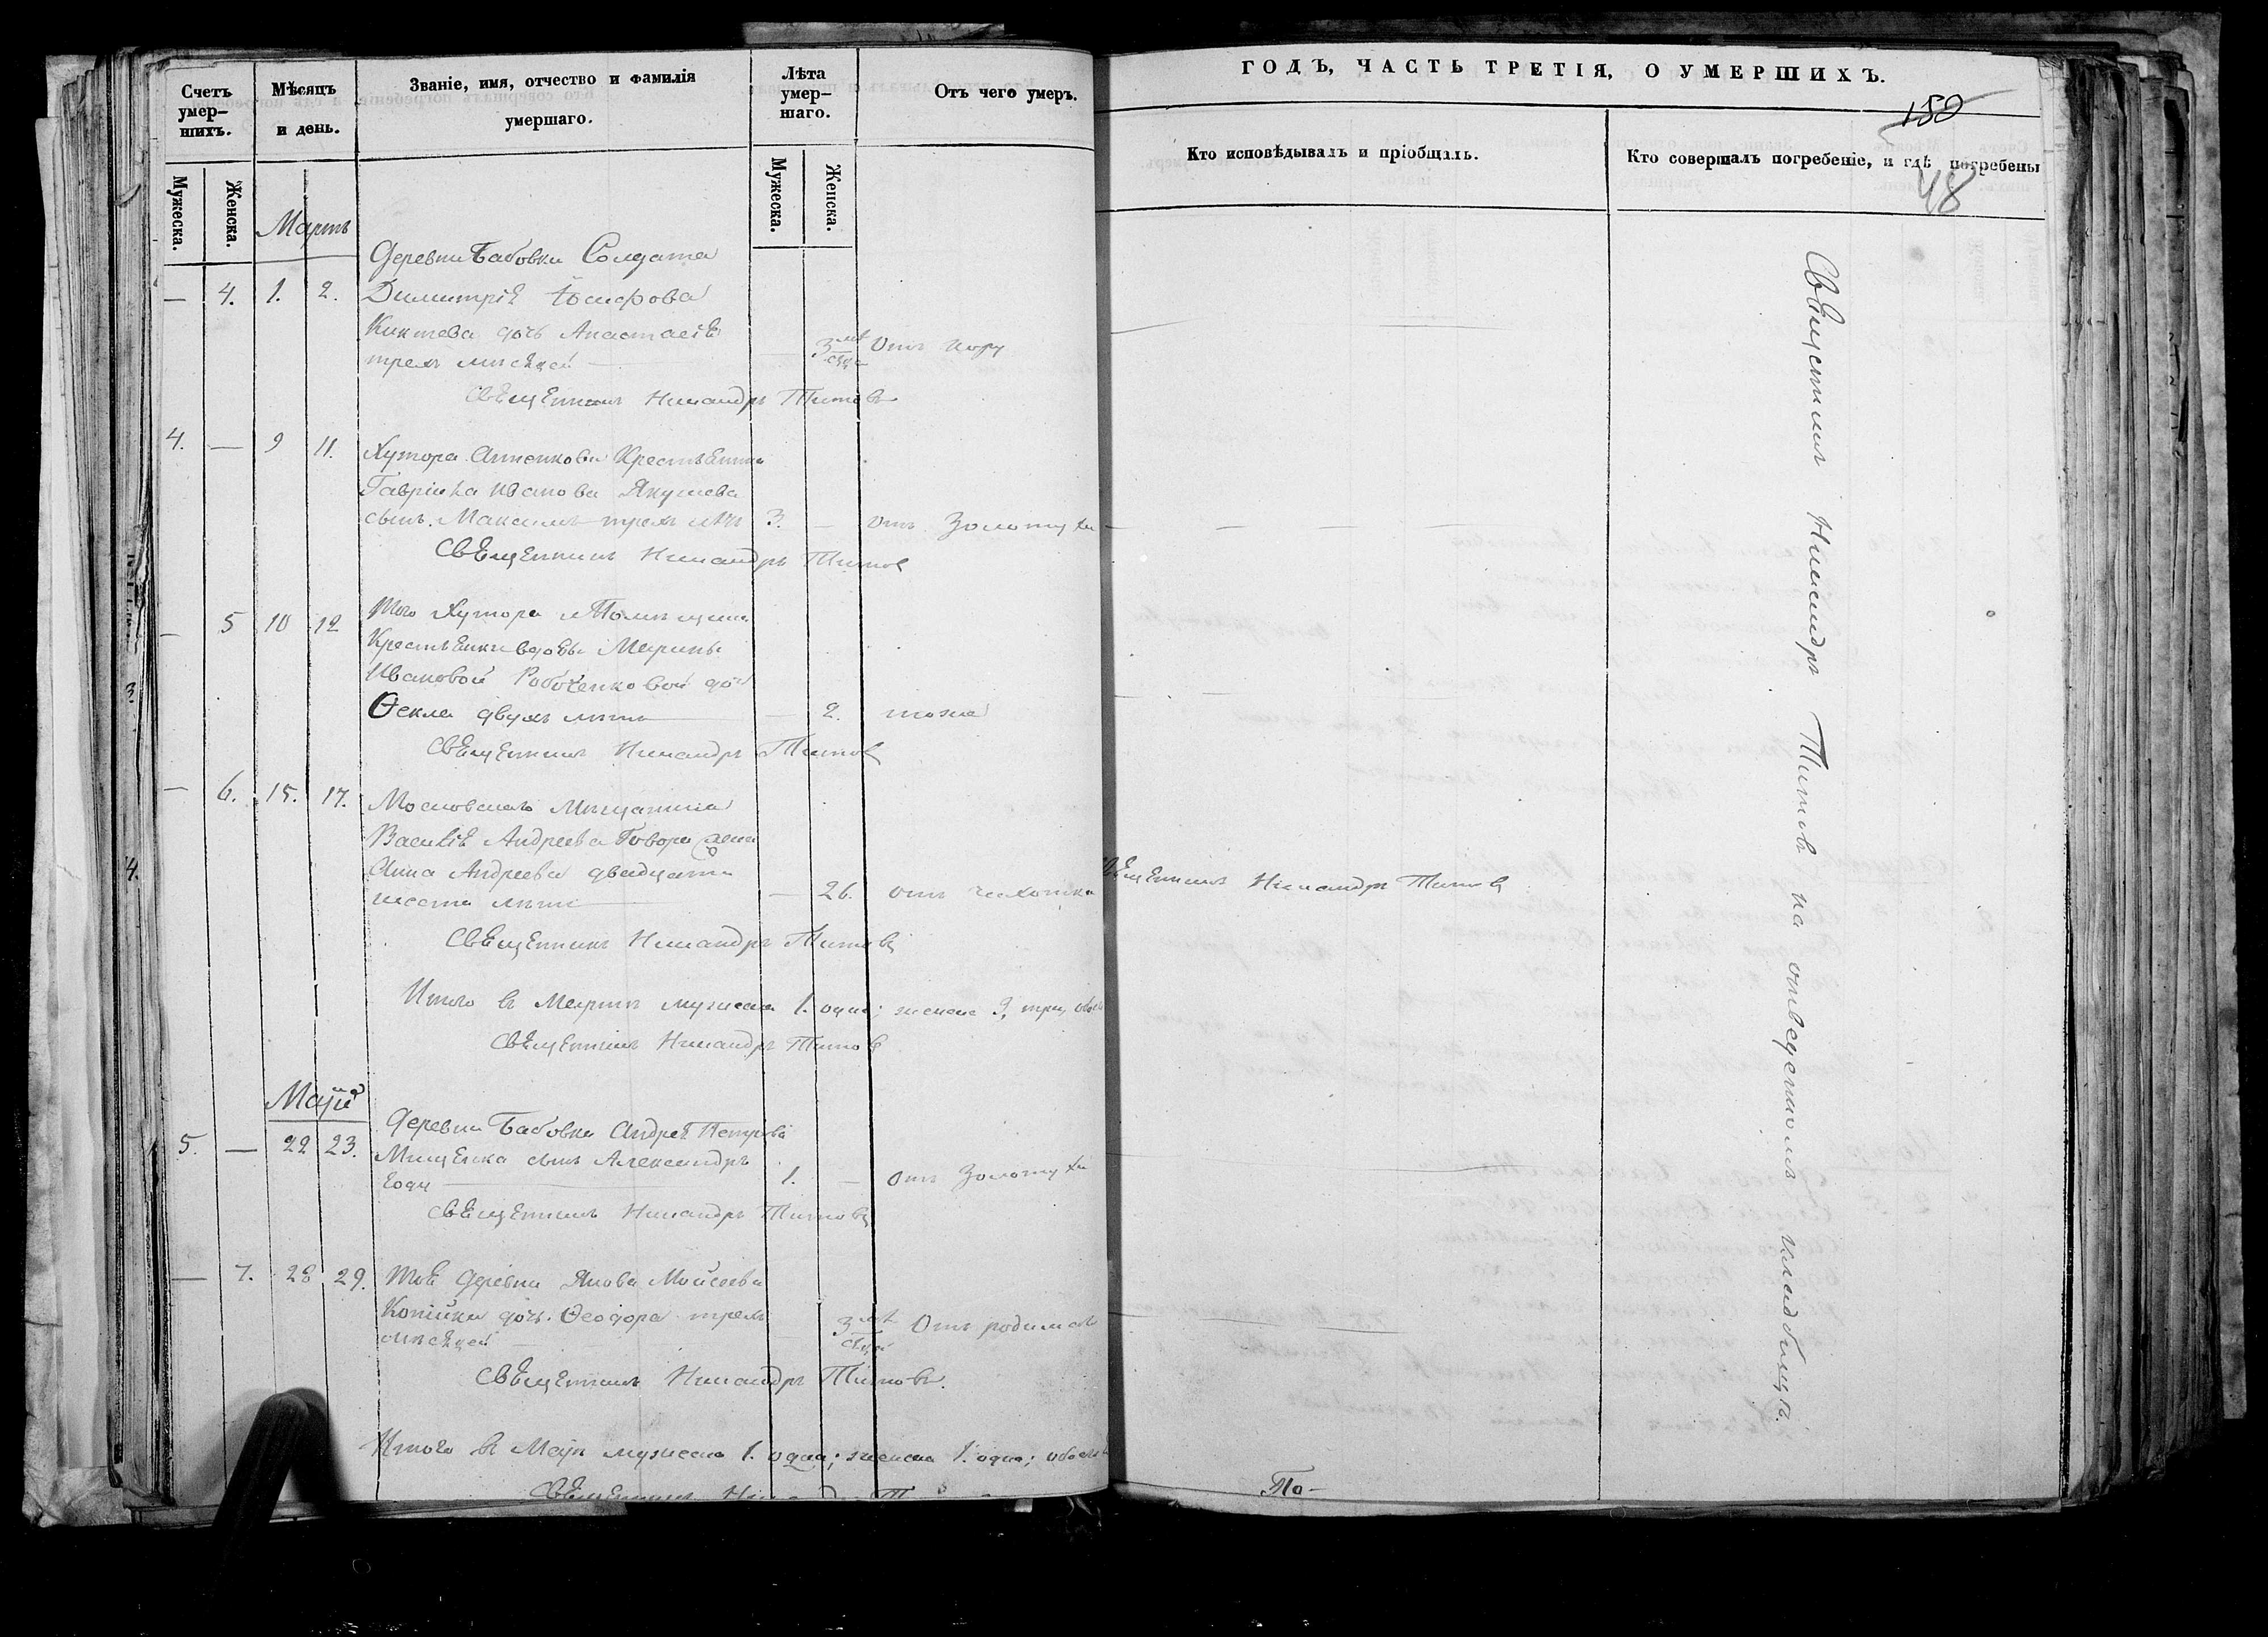 Счетъ умер-
шихъ.
Мѣсяцъ
и день.
Званіе, имя, отчество и фамилія
умершаго.
Лѣта
умер-
шаго.
Отъ чего умеръ.
Мужеска.
Женска.
Мужеска.
Женска.
Мартъ
Деревни Бабовки Солдата
— 4. 1. 2. Димитрія Іосифова
дочь Анастасія
трехъ мѣсяцей — 3 мѣсяца Отъ кору
Священникъ Никандръ Титовъ
4. — 9 11. Хутора Крестьянина
Гавріила Иванова Якушева
сынъ Максимъ трехъ лѣтъ 3. — отъ Золотухи
Священникъ Никандръ Титовъ
— 5 10 12 Того Хутора
Крестьянки вдовы Марины
Ивановой дочь
Ѳекла двухъ лѣтъ — 2. тоже
Священникъ Никандръ Титовъ
— 6. 15. 17. Московскаго Мѣщанина
Василія Андреева Говорова жена
Анна Андреева двадцати
шести лѣтъ — 26. отъ чахотки
Священникъ Никандръ Титовъ
Итого въ Мартѣ мужеска 1. одна; женска 3, три, обоего
Священникъ Никандръ Титовъ
Маій
Деревни Бабовки Андрея Петрова
5. — 22 23. Мищенка сынъ Александръ
года 1. — Отъ Золотухи
Священникъ Никандръ Титовъ
— 7. 28 29. Той Деревни Якова Мойсеева
Копійки дочь Ѳеодора трехъ
мѣсяцей 3 мѣсяцей Отъ родимца
Священникъ Никандръ Титовъ.
Итого въ Маіи мужеска 1. одна; женска 1. одна; обоего
Священникъ
ГОДЪ, ЧАСТЬ ТРЕТІЯ, О УМЕРШИХЪ.
150
Кто исповѣдывалъ и пріобщалъ.
Кто совершалъ погребеніе, и гдѣ погребены
48
Священникъ Никандръ Титовъ
Священникъ Никандръ Титовъ на отведенномъ кладбищѣ.
По-